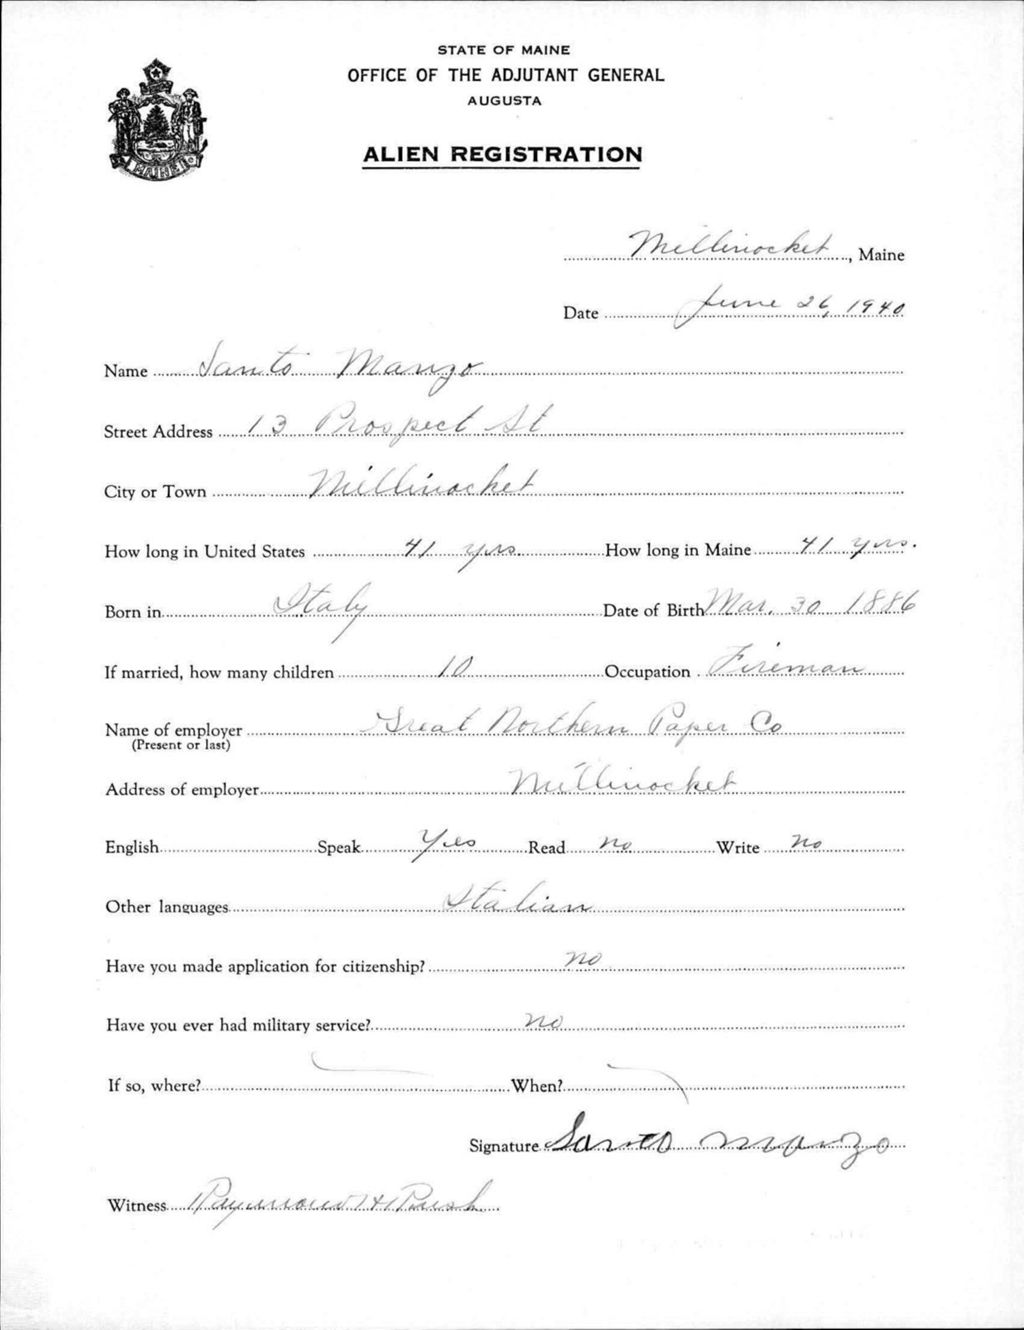 STATE OF MAINE
OFFICE OF THE ADJUTANT GENERAL
AUGUSTA
ALIEN REGISTRATION
MAINE
Millinocket, Maine
Date June 26, 1940
Name Santo Manzo
Street Address 13 Prospect St
City or Town Millinocket
How long in United States 41 yrs. How long in Maine 41 yrs.
Born in Italy Date of Birth Mar. 30 1886
If married, how many children 10 Occupation Fireman
Name of employer Great Northern Paper Co
(Present or last)
Address of employer Millinocket
English Speak Yes Read No Write No
Other languages Italian
Have you made application for citizenship? No
Have you ever had military service? No
If so, where? When?
Signature Santo Manzo
Witness Raymond H Rush